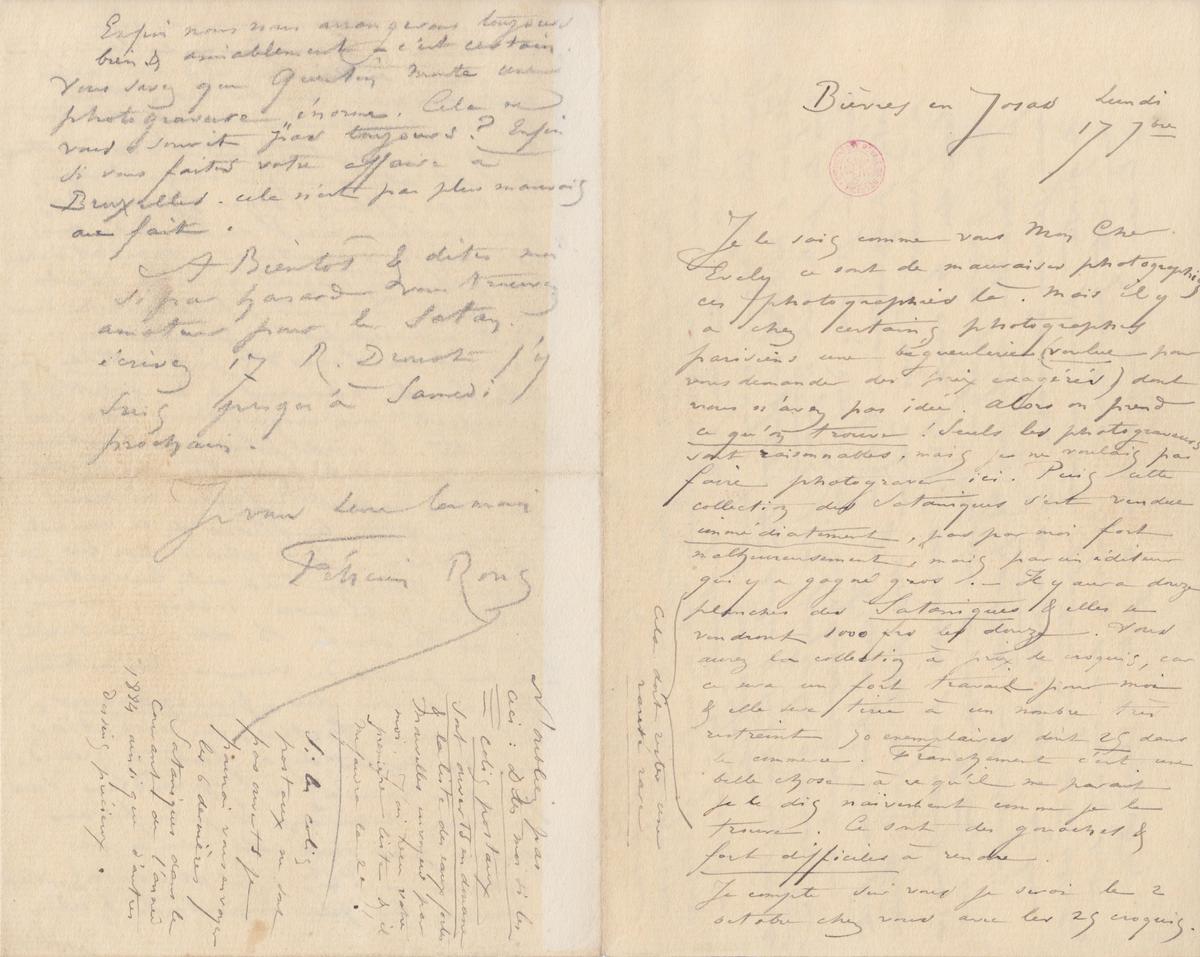 Bièvres en Josas Lundi
17 7bre
Je le sais comme vous Mon Cher
Evely ce sont de mauvaises photographies
ces photographies là. Mais il y
a chez certains photographes
parisiens une bégueulerie (voulue pour
vous demander des prix exagérés) dont
vous n'avez pas idée. Alors on prend
ce qu'on trouve ! Seuls les photograveurs
sont raisonnables, mais je ne voulais pas
faire photograver ici. Puis cette
collection des Sataniques s'est vendue
immédiatement, pas par moi fort
malheureusement, mais par un éditeur
qui y a gagné gros. — Il y aura douze
planches des Sataniques & elles se
vendront 1000 frs les douze. Vous
aurez la collection à prix de croquis, car
ce sera un fort travail pour moi
& elle sera tirée à un nombre très
restreint 50 exemplaires dont 25 dans
le commerce. Franchement c'est une
belle chose à ce qu'il me parait
je le dis naïvement comme je le
trouve. Ce sont des gouaches &
fort difficiles à rendre.
Je compte sur vous je serai le 2
octobre chez vous avec les 25 croquis.
Cela doit rester une
rareté rare
Enfin nous nous arrangerons toujours
bien & amiablement - c'est certain.
Vous savez que Quentin monte une
photogravure "énorme. Cela ne
vous sourit pas toujours ? Enfin
si vous faites votre affaire à
Bruxelles. cela n'est pas plus mauvais
au fait.
A Bientôt & dites moi
si par hasard vous trouvez
amateur pour le Satan.
écrivez 17 R. Drouot j'y
suis jusqu'à Samedi
prochain.
Je vous serre la main
Félicien Rops
N'oubliez pas
ceci : Dites moi si les
colis postaux
sont ouverts en douane
& la liste des eaux fortes
Nouvelles envoyées par
moi. J'ai bien votre
première liste & il
me faudra la 2e.
Si les colis
postaux ne sont
pas ouverts je
pourrai vous envoyer
les 6 dernières
Sataniques dans le
courant de l'année
1884 ainsi que d'autres
dessins précieux.